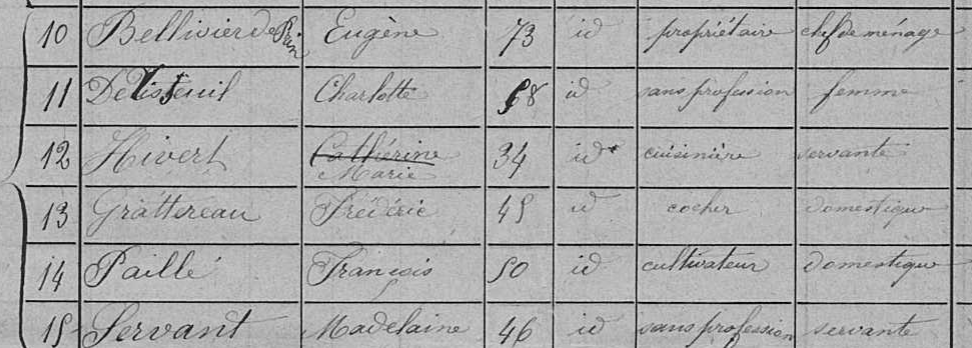 10 Bellivier de Prin Eugène 73 id propriétaire chef de ménage
11 De Listeuil Charlotte 68 id sans profession femme
12 Hivert Catherine Marie 34 id cuisinière servante
13 Grattereau Frédéric 45 id cocher domestique
14 Paillé François 50 id cultivateur domestique
15 Servant Madelaine 46 id sans profession servante